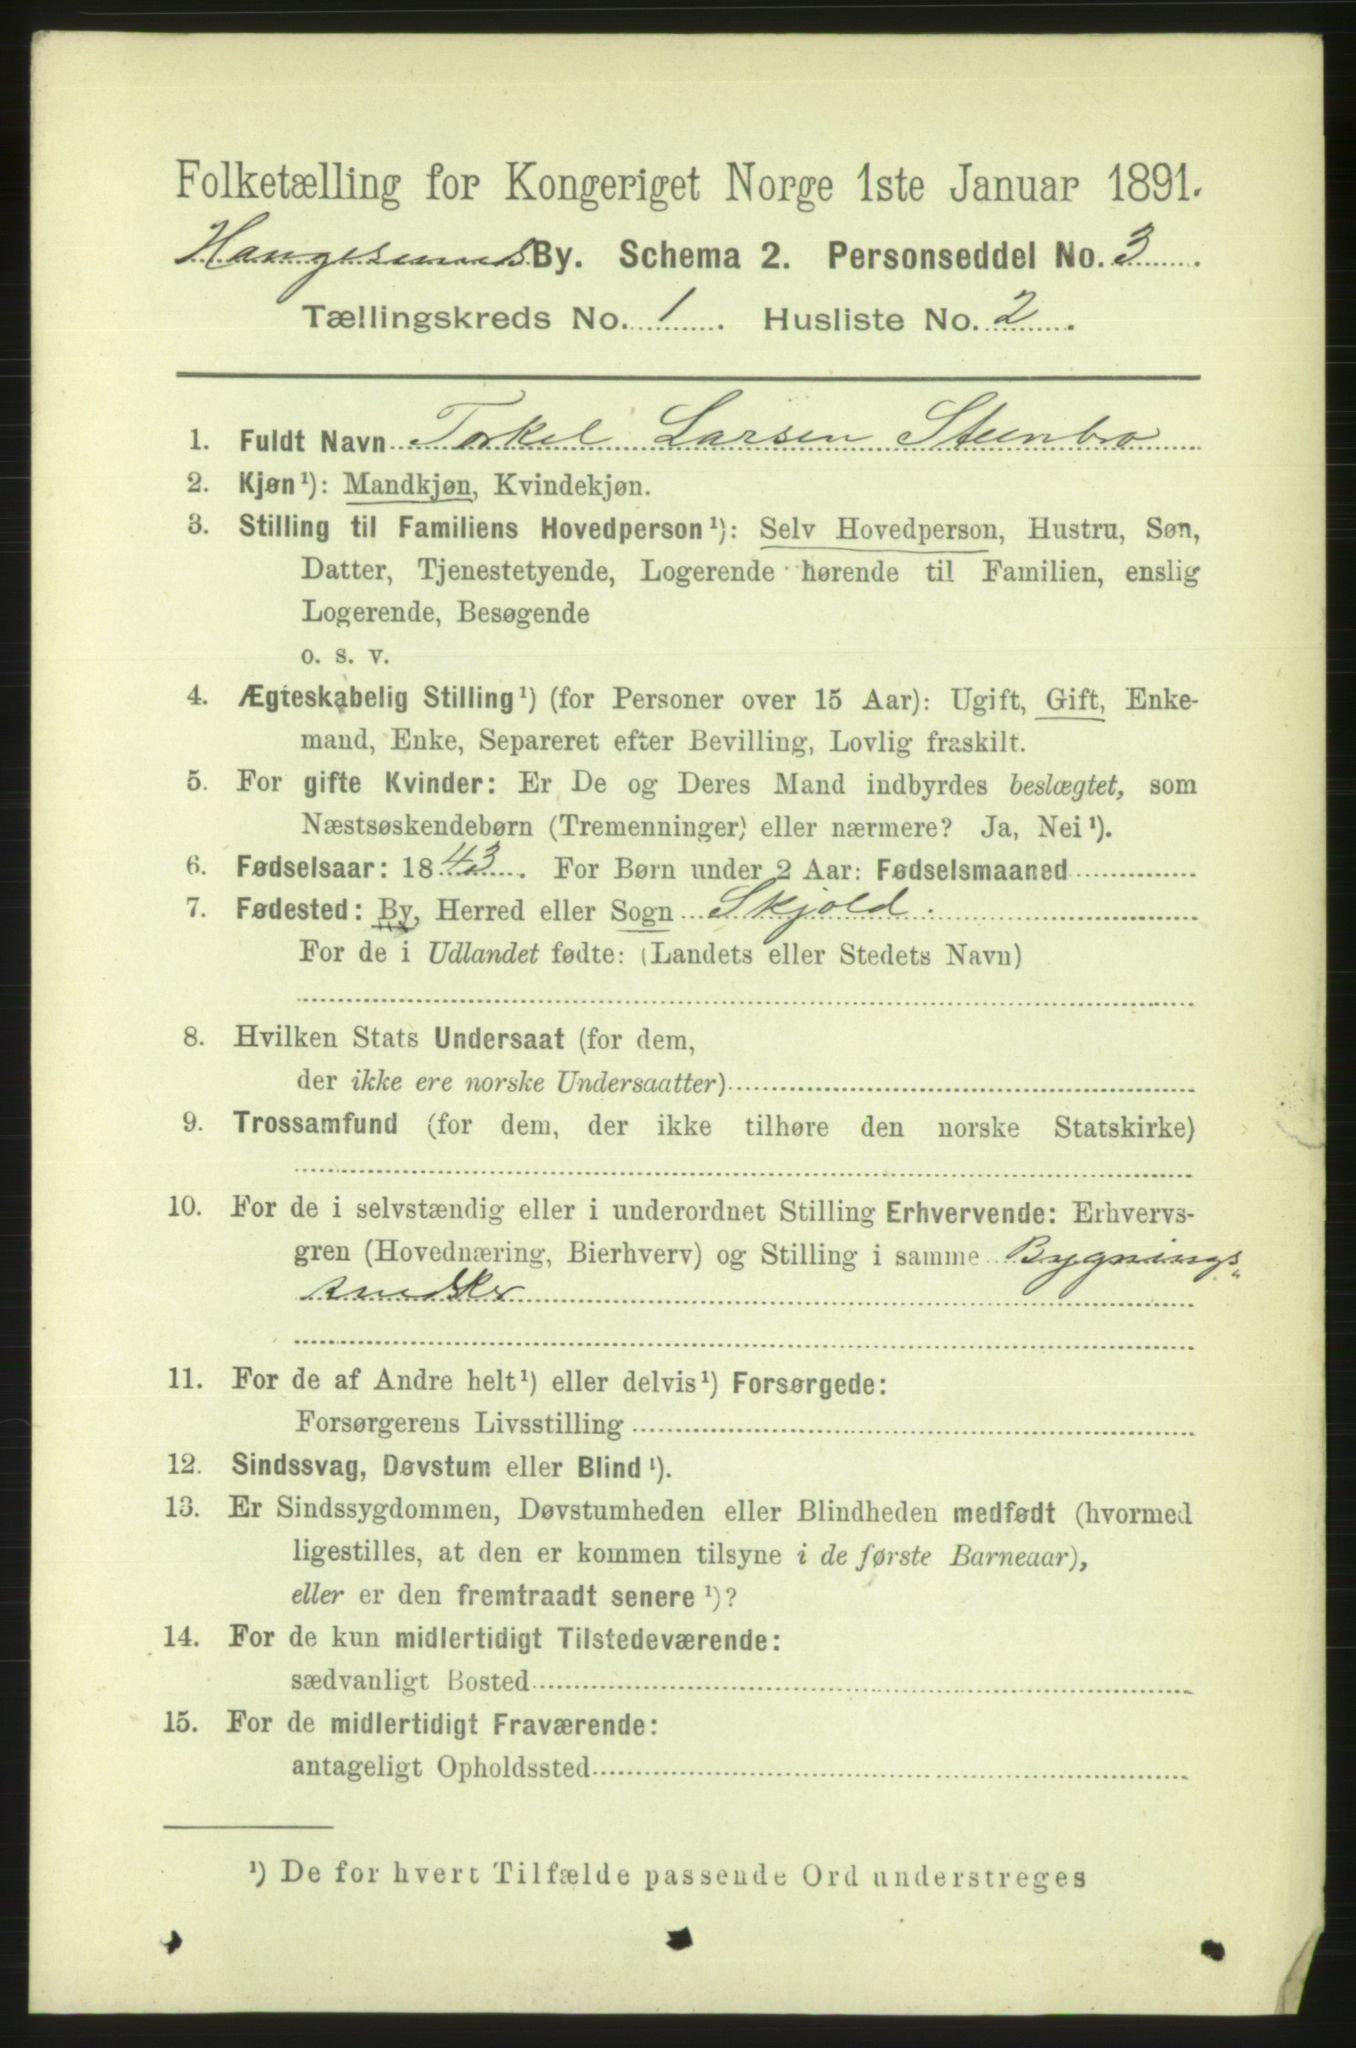 Folketælling for Kongeriget Norge 1ste Januar 1891.
Haugesunds By. Schema 2. Personseddel No. 3
Tællingskreds No. 1. Husliste No. 2.
1. Fuldt Navn Torkel Larsen Steenbro
2. Kjøn¹): Mandkjøn, Kvindekjøn.
3. Stilling til Familiens Hovedperson¹): Selv Hovedperson, Hustru, Søn,
Datter, Tjenestetyende, Logerende hørende til Familien, enslig
Logerende, Besøgende
o. s. v.
4. Ægteskabelig Stilling¹) (for Personer over 15 Aar): Ugift, Gift, Enke-
mand, Enke, Separeret efter Bevilling, Lovlig fraskilt.
5. For gifte Kvinder: Er De og Deres Mand indbyrdes beslægtet, som
Næstsøskendebørn (Tremenninger) eller nærmere? Ja, Nei¹).
6. Fødselsaar: 1843. For Børn under 2 Aar: Fødselsmaaned
7. Fødested: By, Herred eller Sogn Skjold.
For de i Udlandet fødte: (Landets eller Stedets Navn)
8. Hvilken Stats Undersaat (for dem,
der ikke ere norske Undersaatter)
9. Trossamfund (for dem, der ikke tilhøre den norske Statskirke)
10. For de i selvstændig eller i underordnet Stilling Erhvervende: Erhvervs-
gren (Hovednæring, Bierhverv) og Stilling i samme Bygnings„
snedker
11. For de af Andre helt¹) eller delvis¹) Forsørgede:
Forsørgerens Livsstilling
12. Sindssvag, Døvstum eller Blind¹).
13. Er Sindssygdommen, Døvstumheden eller Blindheden medfødt (hvormed
ligestilles, at den er kommen tilsyne i de første Barneaar),
eller er den fremtraadt senere¹)?
14. For de kun midlertidigt Tilstedeværende:
sædvanligt Bosted
15. For de midlertidigt Fraværende:
antageligt Opholdssted
¹) De for hvert Tilfælde passende Ord understreges